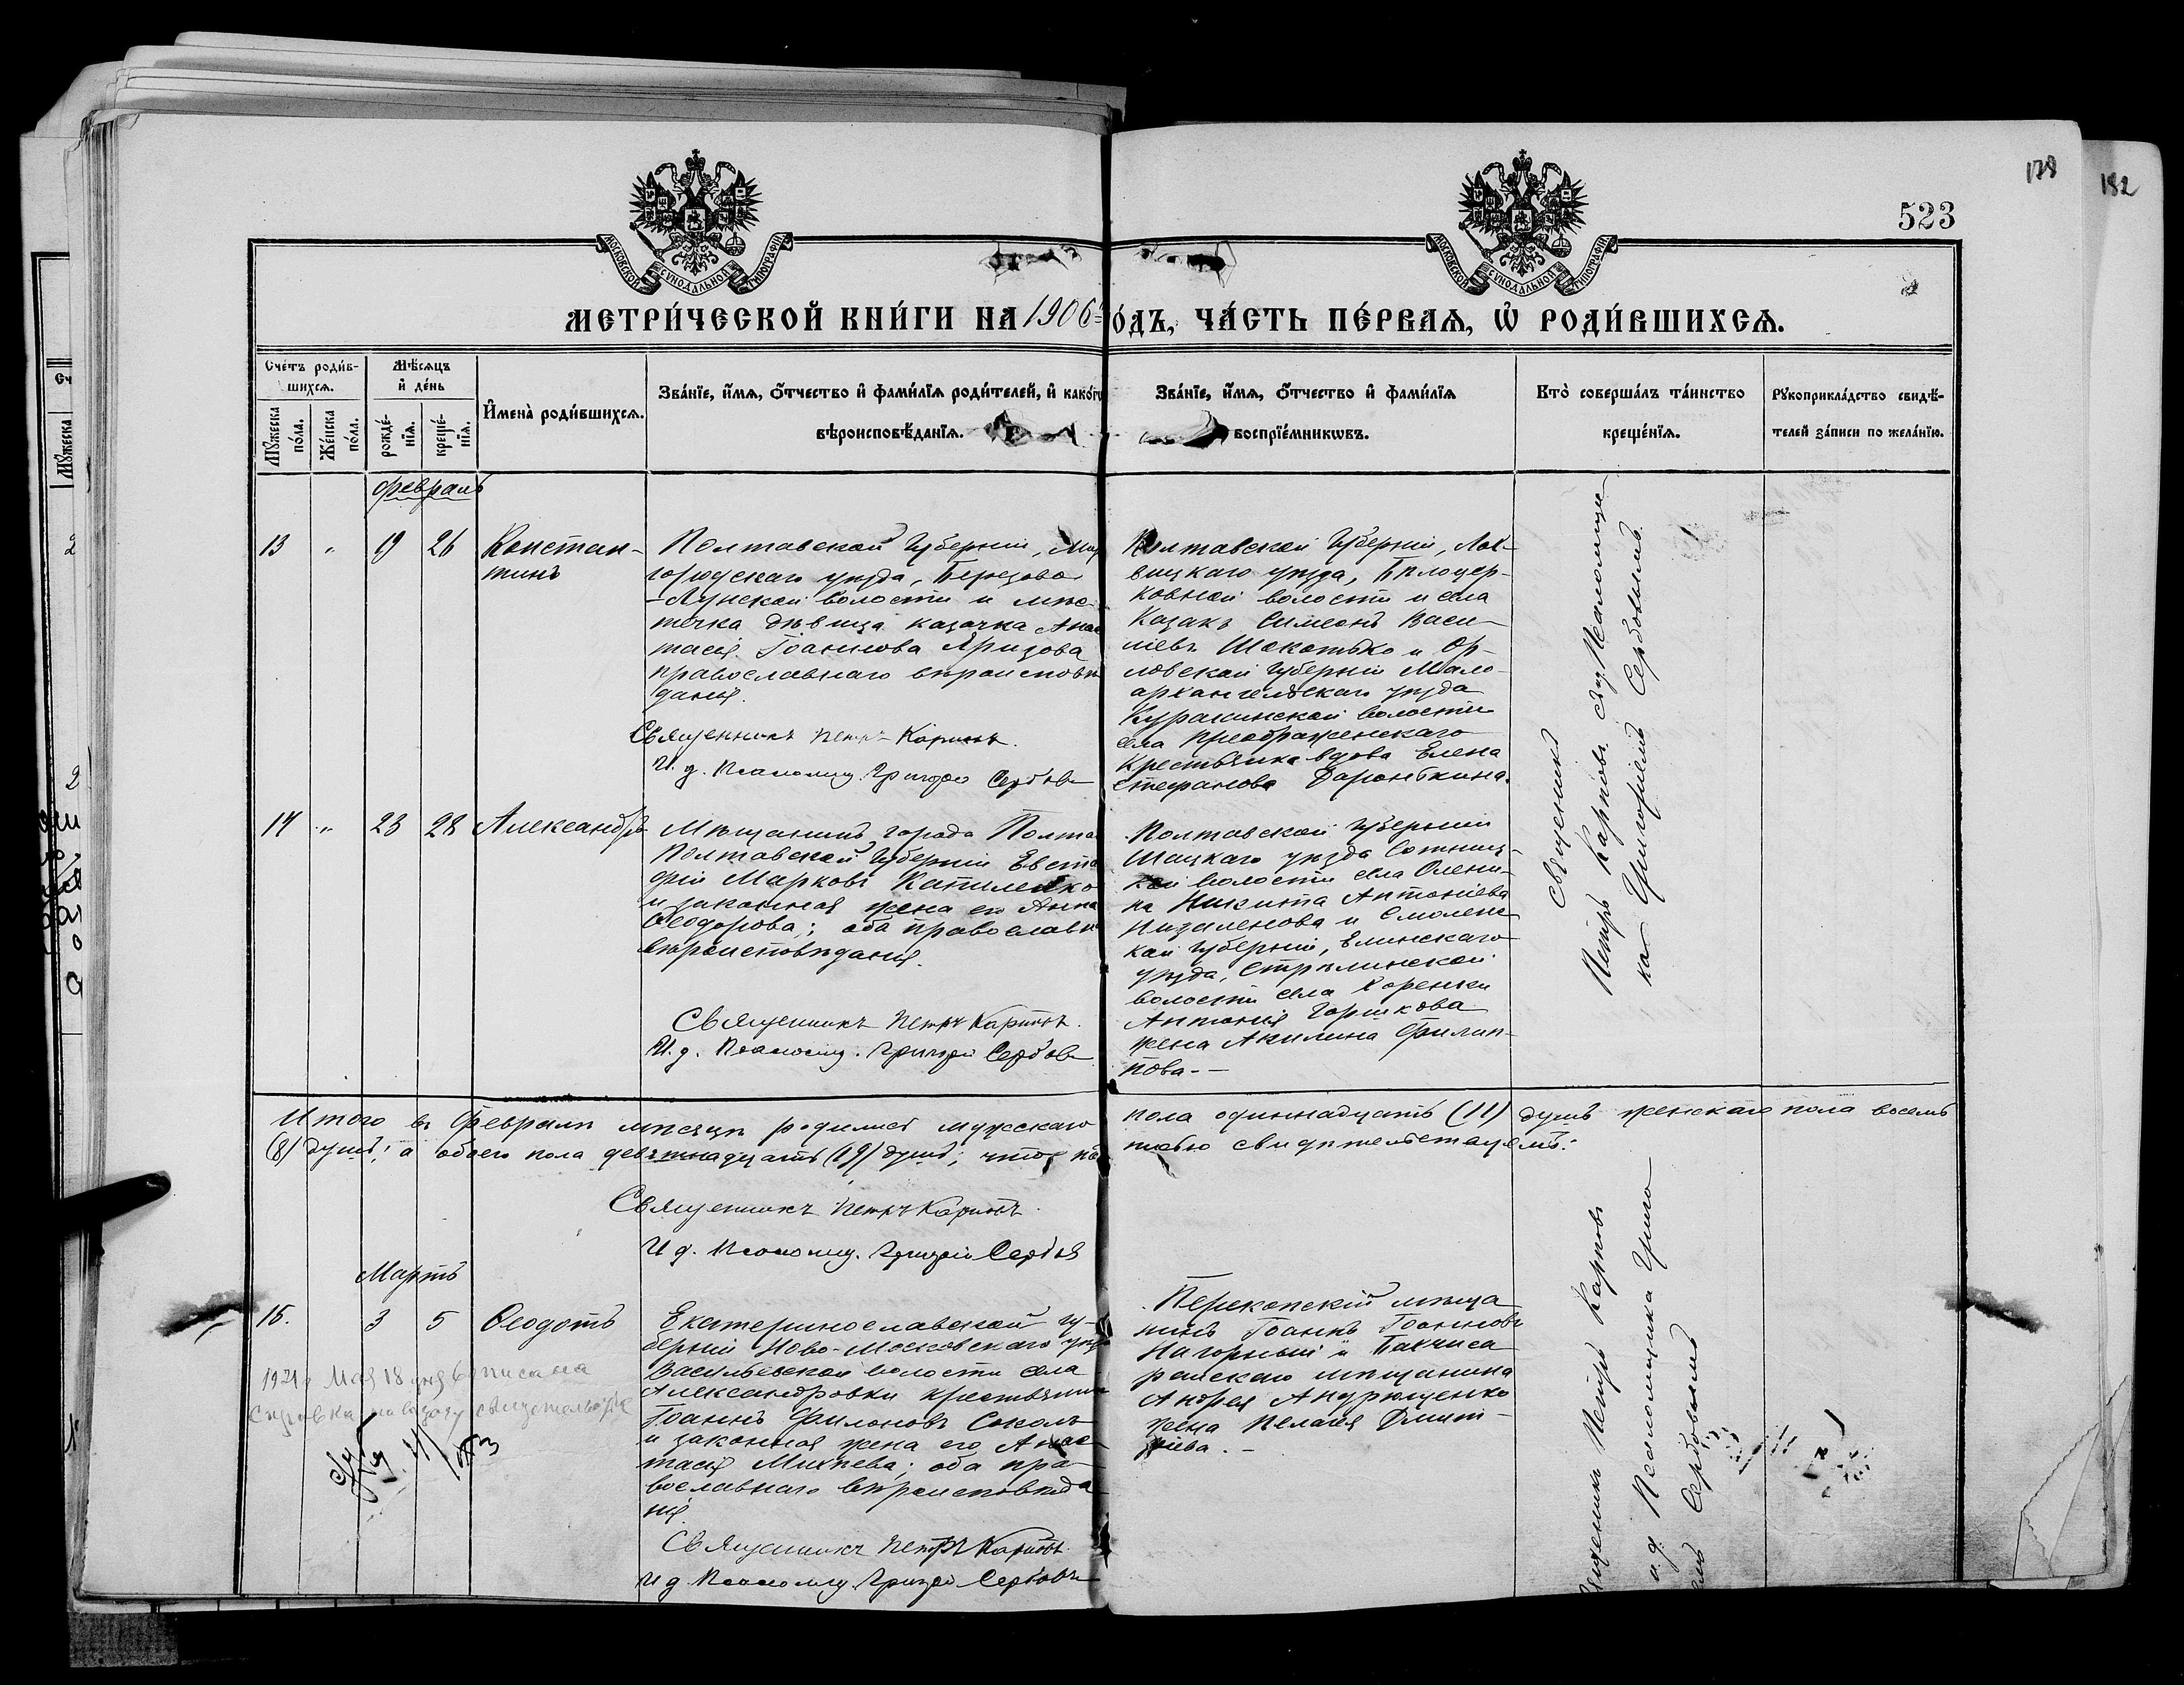 178
182
523
МОСКОВСКОЙ СѴНОДАЛЬНОЙ ТИПОГРАФІИ
МОСКОВСКОЙ СѴНОДАЛЬНОЙ ТИПОГРАФІИ
МЕТРИ́ЧЕСКОЙ КНИ́ГИ НА 1906 г
ОДЪ, ЧА́СТЬ ПЕ́РВАЯ, Ѡ РОДИ́ВШИХСЯ.
Сче́тъ роди́в-
шихся.
Мѣ́сяцъ
и де́нь
Му́жеска по́ла.
Же́нска по́ла.
рожде́-
нїя.
креще́-
нїя.
Имена̀ роди́вшихся.
Зва́нїе, и́мя, о́тчество и фами́лїя роди́телей, и како́гѡ
вѣроисповѣ́данїя.
Зва́нїе, и́мя, о́тчество и фами́лїя
воспрїе́мникѡвъ.
Кто̀ соверша́лъ та́инство
креще́нїя.
Рꙋкоприкла́дство свидѣ́-
телей за́писи по жела́нїю.
Февраль
13 " 19 26 Констан-
тинъ
Полтавской Губерніи, Мир
городскаго уѣзда, Березово
-Лукской волости и мѣс-
течка дѣвица казачка Анас
тасія Іоаннова Яризова
православнаго вѣроисповѣ
данія.
Священникъ Петръ Карповъ.
И. д. Псаломщ. Григорій Сербовъ
Полтавской Губерніи, Лох-
вицкаго уѣзда, Бѣлоцер-
ковной волости и села
Казакъ Симеонъ Васи-
ліевъ Шекотько и Ор-
ловской Губерніи Мало-
архангельскаго уѣзда
Куракинской волости
села Преображенскаго
крестьянка вдова Елена
Стефанова
Священникъ
Петръ Карповъ съ и.д. Псаломщи-
ка Григоріемъ Сербовымъ.
14 " 23 28 Александръ
Мѣщанинъ города Полта
Полтавской Губерніи Евста
фій Марковъ Капиленко
и законная жена его Анна
Ѳеодорова; оба православн
вѣроисповѣданія.
Священникъ Петръ Карповъ.
И. д. Псаломщ. Григорій Сербовъ
Полтавской Губерніи
уѣзда
волости села
на Никита Антоніева
и Смоленс
кой Губерніи, Елинскаго
уѣзда,
волости села Кореньки
Антонія Горшкова
жена Акилина Филип-
пова. -
Итого въ Февралѣ мѣсяцѣ родились мужескаго
пола одиннадцать (11) душъ женскаго пола восемь
(8) душъ; а обоего пола девятнадцать (19) душъ; что по
тью свидѣтельствуемъ:
Священникъ Петръ Карповъ.
И д. Псаломщ. Григорій Сербовъ
Мартъ
15. 3 5 Ѳеодотъ
Екатеринославской гу-
берніи Ново-Московскаго уѣзд
Васильевской волости села
Александровки крестьянин
Іоаннъ Филоновъ Соколъ
и законная жена его Анас-
тасія Михѣева; оба пра-
вославнаго вѣроисповѣда
нія.
Священникъ Петръ Карповъ.
И д. Псаломщ. Григорій Сербовъ
Перекопскій мѣща
нинъ Іоаннъ Іоанновъ
Нагорный и Бахчиса
райскаго мѣщанина
Андрея Андрющенко
жена Пелагія Димит-
ріева. -
Священникъ Петръ Карповъ
и.д. Псаломщика Григо
Сербовымъ
1921 г Мая 18 дня выписана